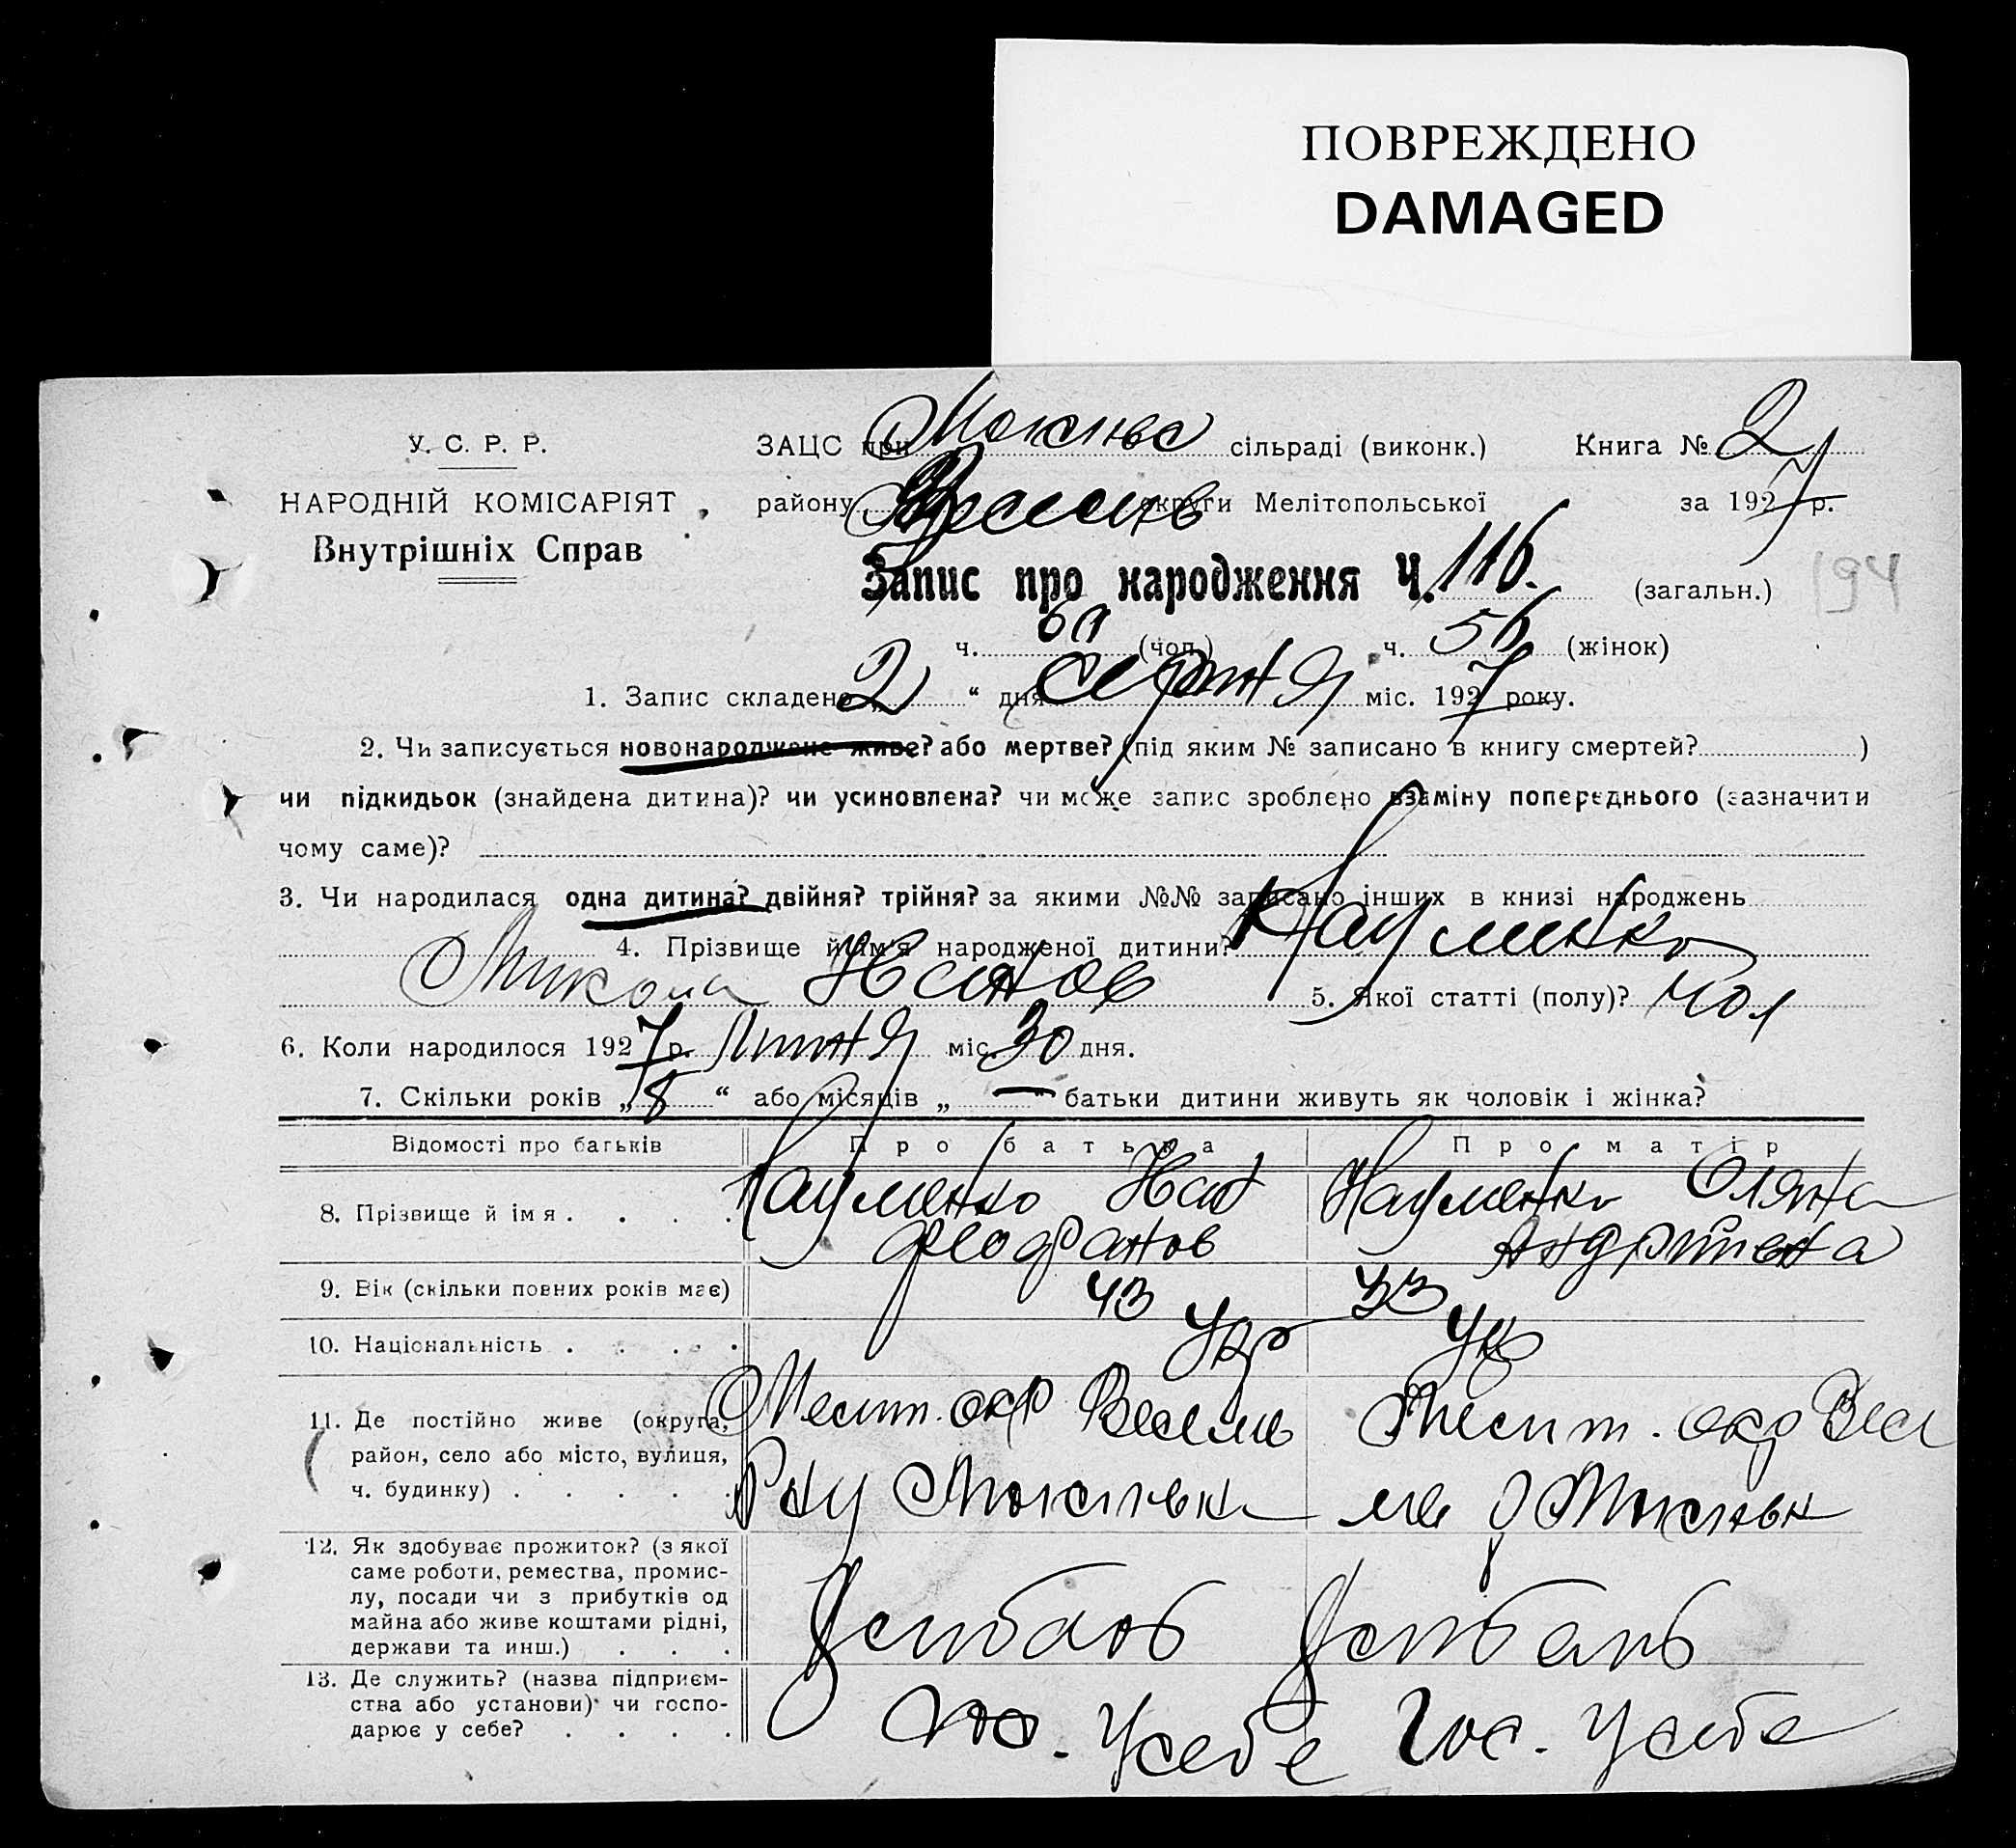 ПОВРЕЖДЕНО
DAMAGED
У. С. Р. Р.
НАРОДНІЙ КОМІСАРІЯТ
Внутрішніх Справ
ЗАЦС при сільраді (виконк.) Книга № 2
району округи Мелітопольської за 1927 р.
Запис про народження Ч. 116. (загальн.)
194
ч. 60 (чол.) ч. 56 (жінок)
1. Запис складено „ 2 “ дня Серпня міс. 1927 року.
2. Чи записується новонароджене живе? або мертве? (під яким № записано в книгу смертей? )
чи підкидьок (знайдена дитина)? чи усиновлена? чи може запис зроблено взаміну попереднього (зазначити
чому саме)?
3. Чи народилася одна дитина? двійня? трійня? за якими №№ записано інших в книзі народжень
4. Прізвище й ім'я народженої дитини? Науменко
Микола 5. Якої статті (полу)? чол
6. Коли народилося 1927 р. Липня міс. 30 дня.
7. Скільки років „ 8 “ або місяців „ — “ батьки дитини живуть як чоловік і жінка?
Відомості про батьків Про батька Про матір
8. Прізвище й імя . . . . Науменко Науменко Оляна
Феофанов Андріивна
9. Вік (скільки повних років має) 43 33
10. Національність . . . . Укр Укр
11. Де постійно живе (округа, район, село або місто, вулиця, ч. будинку) . . . . .
Мелит. окр Весели Мелит. окр Весе
12. Як здобуває прожиток? (з якої саме роботи, ремества, промислу, посади чи з прибутків од майна або живе коштами рідні, держави та инш.) . . .
13. Де служить? (назва підприємства або установи) чи господарює у себе? . . . .
Гос. у себе Гос. у себе